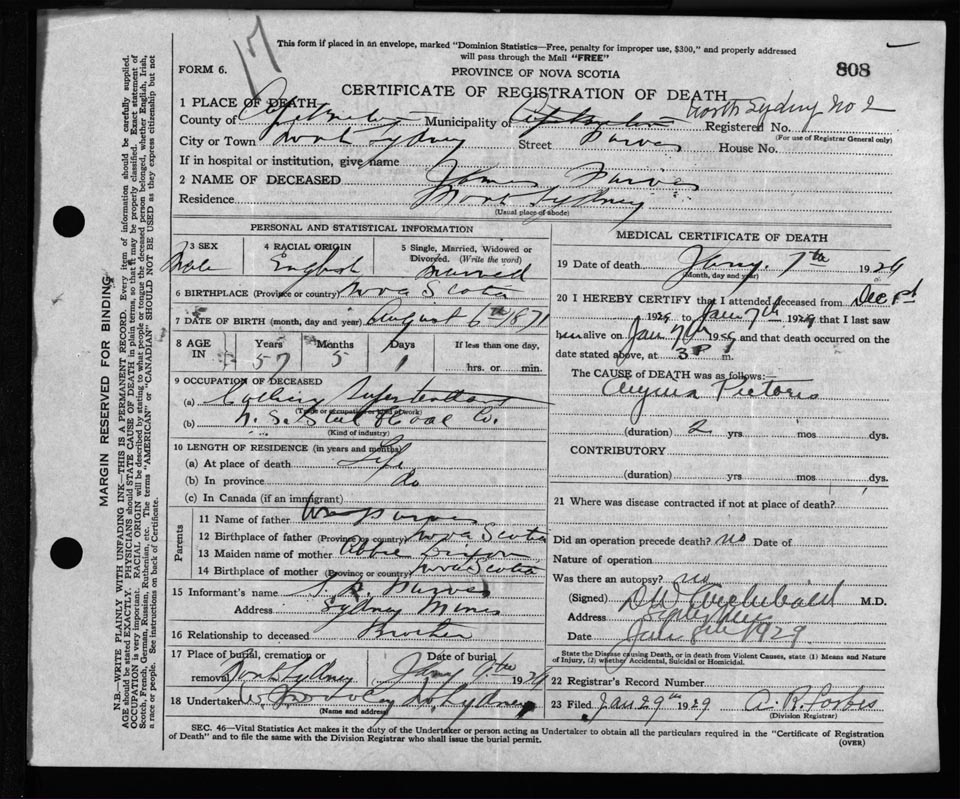 17
This form if placed in an envelope, marked "Dominion Statistics—Free, penalty for improper use, $300," and properly addressed
will pass through the Mail "FREE"
FORM 6.
PROVINCE OF NOVA SCOTIA
808
CERTIFICATE OF REGISTRATION OF DEATH
North Sydney No 2
1 PLACE OF DEATH
County of Cape Breton Municipality of Cape Breton Registered No.
(For use of Registrar General only)
City or Town North Sydney Street Purves House No.
If in hospital or institution, give name
2 NAME OF DECEASED James Purves
Residence North Sydney
(Usual place of abode)
PERSONAL AND STATISTICAL INFORMATION
3 SEX 4 RACIAL ORIGIN 5 Single, Married, Widowed or
Divorced. (Write the word)
Male English Married
6 BIRTHPLACE (Province or country) Nova Scotia
7 DATE OF BIRTH (month, day and year) August 6th 1871
8 AGE IN Years Months Days If less than one day,
57 5 1 hrs. or min.
9 OCCUPATION OF DECEASED
(a) Colliery Superintendent
(Trade or occupation or kind of work)
(b) N. S. Steel & Coal Co.
(Kind of industry)
10 LENGTH OF RESIDENCE (in years and months)
(a) At place of death Life
(b) In province do
(c) In Canada (if an immigrant)
Parents
11 Name of father Wm Purves
12 Birthplace of father (Province or country) Nova Scotia
13 Maiden name of mother
14 Birthplace of mother (Province or country) Nova Scotia
15 Informant's name Purves
Address Sydney Mines
16 Relationship to deceased Brother
17 Place of burial, cremation or Date of burial
removal North Sydney Jany 1929
18 Undertaker No. Sydney
(Name and address)
MEDICAL CERTIFICATE OF DEATH
19 Date of death Jany 7th 1929
(Month, day and year)
20 I HEREBY CERTIFY that I attended deceased from Dec
192 to Jan 7th 1929 that I last saw
h alive on Jan 7th 192 and that death occurred on the
date stated above, at 3 P m.
The CAUSE of DEATH was as follows:—
Angina Pectoris
(duration) 2 yrs. mos dys.
CONTRIBUTORY
(duration) yrs. mos dys.
21 Where was disease contracted if not at place of death?
Did an operation precede death? no Date of
Nature of operation
Was there an autopsy? no
(Signed) D W Archibald M.D.
Address
Date 1929
State the Disease causing Death, or in death from Violent Causes, state (1) Means and Nature
of Injury, (2) whether Accidental, Suicidal or Homicidal.
22 Registrar's Record Number
23 Filed Jan 29th 1929 A. R. Forbes
(Division Registrar)
SEC. 46—Vital Statistics Act makes it the duty of the Undertaker or person acting as Undertaker to obtain all the particulars required in the "Certificate of Registration
of Death" and to file the same with the Division Registrar who shall issue the burial permit.
(OVER)
MARGIN RESERVED FOR BINDING
N.B.—WRITE PLAINLY WITH UNFADING INK—THIS IS A PERMANENT RECORD. Every item of information should be carefully supplied.
AGE should be stated EXACTLY. PHYSICIANS should STATE CAUSE OF DEATH in plain terms, so that it may be properly classified. Exact statement of
OCCUPATION is very important. RACIAL ORIGIN will be described by stating to what people or tongue the deceased person belonged, whether English, Irish,
Scotch, French, German, Russian, Ruthenian, etc. The terms "AMERICAN" or "CANADIAN" SHOULD NOT BE USED as they express citizenship but not
a race or people. See instructions on back of Certificate.